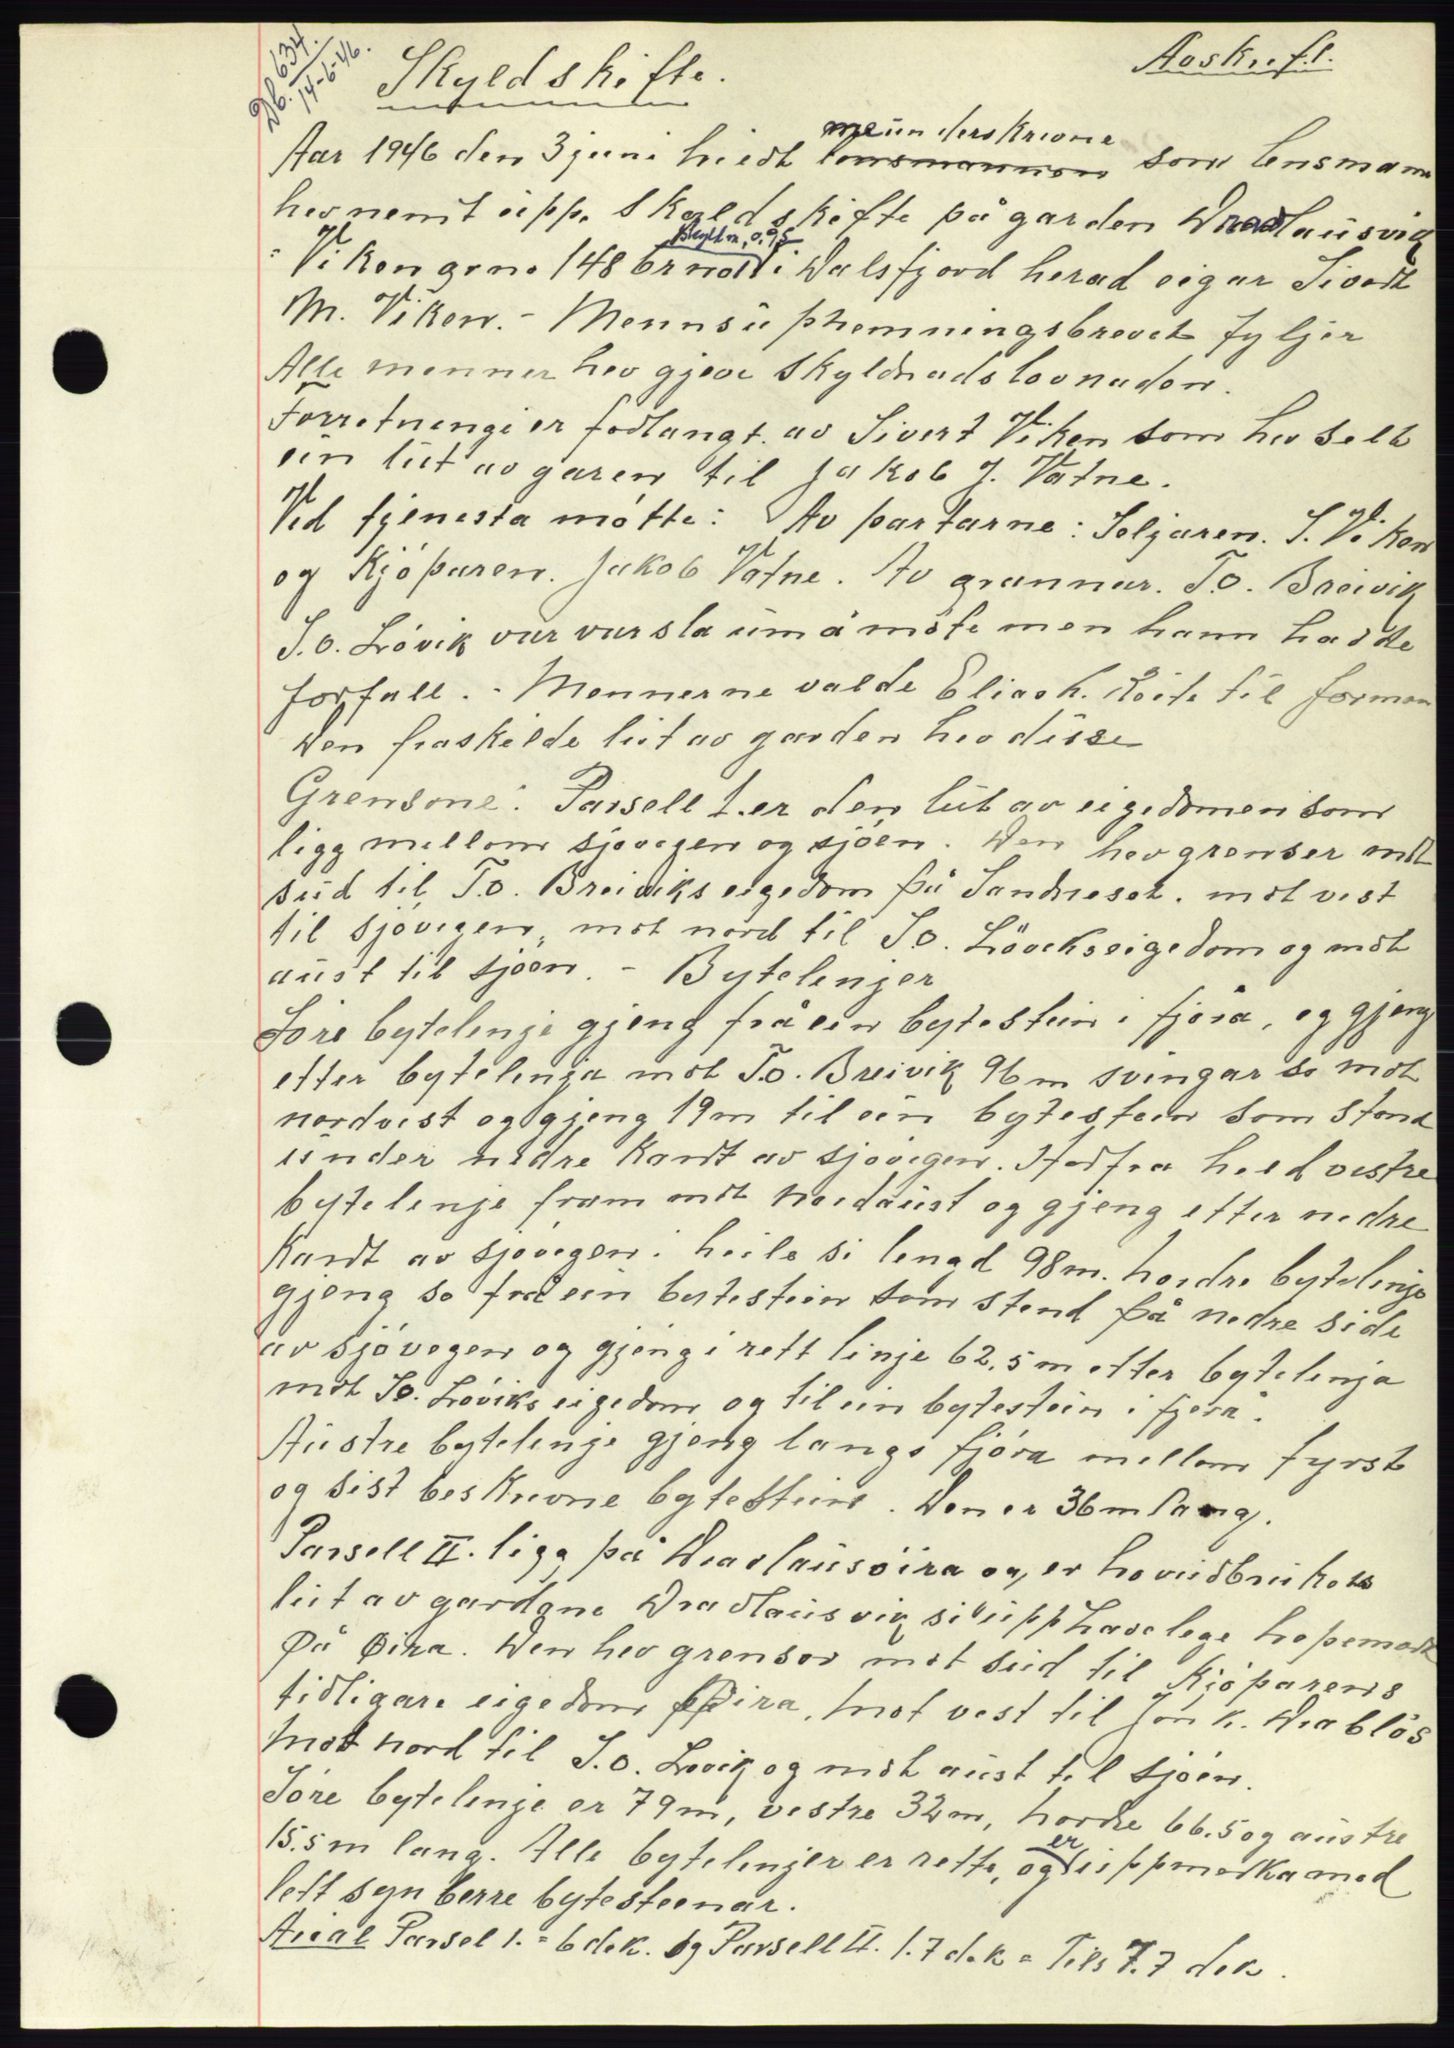 Db. 634.
14-6-46.
Avskrift.
Skyldskifte.
me underskrivne
Aar 1946 den 3 juni heldt lensmannen som lensmann
hev nemnt upp. Skyldskifte på garden Dravlausvik
Skyld m. 0,95
Viken grno 148 brno 1 i Dalsfjord herad eigar Sivert
M. Viken. - Mennsuppnemningsbrevet fylgjer
Alle menner hev gjeve skyldnadslovnaden.
Forretningi er forlangt av Sivert Viken som hev selt
ein lut av garen til Jakob J. Vatne.
Ved tjenesta møtte: Av partarne: Seljaren. S. Viken
og Kjøparen. Jakob Vatne. Av grannar. T.O. Breivik
S.O. Løvik var varsla um å møte men hann hadde
forfall. - Mennerne valde Elias h. Koite til formann
Den fraskilde lut av garden hev disse
Grensone: Parsell 1. er den lut av eigedomen som
ligg mellom sjøvegen og sjøen. Den hev grenser mot
sud til T.O. Breiviks eigedom på Sandneset. mot vest
til sjøvegen, mot nord til S.O. Løviks eigedom og mot
aust til sjøen. - Bytelenjer
Søre bytelenje gjeng frå ein bytestein i fjøra, og gjeng
etter bytelenja mot T.O. Breivik 96 m svingar so mot
nordvest og gjeng 19 m til ein bytestein som stend
under nedre kant av sjøvegen. Herfra held vestre
bytelenje fram mot nordaust og gjeng etter nedre
Kandt av sjøvegen i heile si lengd 98 m. nordre bytelenje
gjeng so frå ein bytestein som stend på nedre side
av sjøvegen og gjeng i rett linje 62.5 m etter bytelenja
mot S.O. Løviks eigedom og til ein bytestein i fjera.
Austre bytelenje gjeng langs fjøra mellom fyrst
og sist beskrivne bytestein. Den er 36 m lang.
Parsell II. ligg på Dravlausøira og er hovudbrukets
lut av gardane Dravlausvik si upphavelege hopemark
på Øira. Den hev grensor mot sud til Kjøparens
tidligare eigedom Øira, mot vest til Jon K. Drabløs
Mot nord til S.O. Løvik og mot aust til sjøen.
Søre bytelenje er 79 m, vestre 32 m, nordre 66.5 og austre
15.5 m lang. Alle bytelenjer er rette, og er uppmerka med
lett synberre bytesteinar.
Areal Parsel 1. = 6 dek. og Parsell II. 1.7 dek = Tils 7.7 dek.